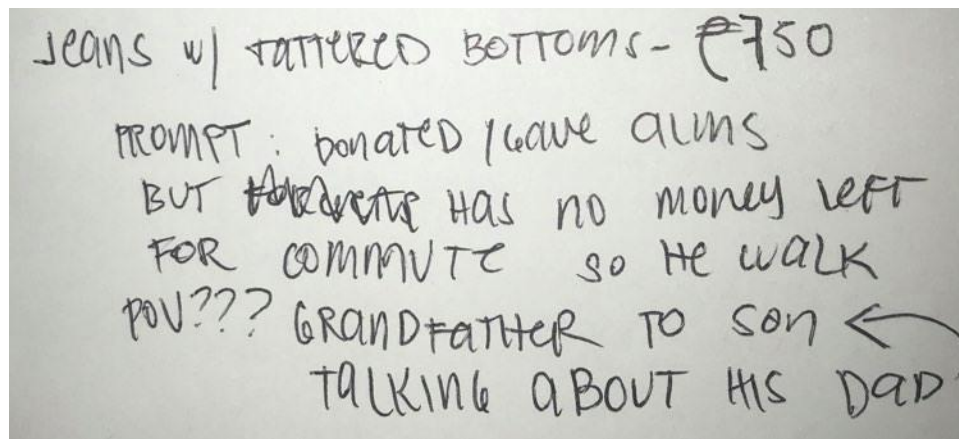 Jeans w/ TATTERED BOTTOMS - ₱750
PROMPT: DONATED / GAVE ALMS
BUT HAS NO MONEY LEFT
FOR COMMUTE SO HE WALK
POV??? GRANDFATHER TO SON
TALKING ABOUT HIS DAD